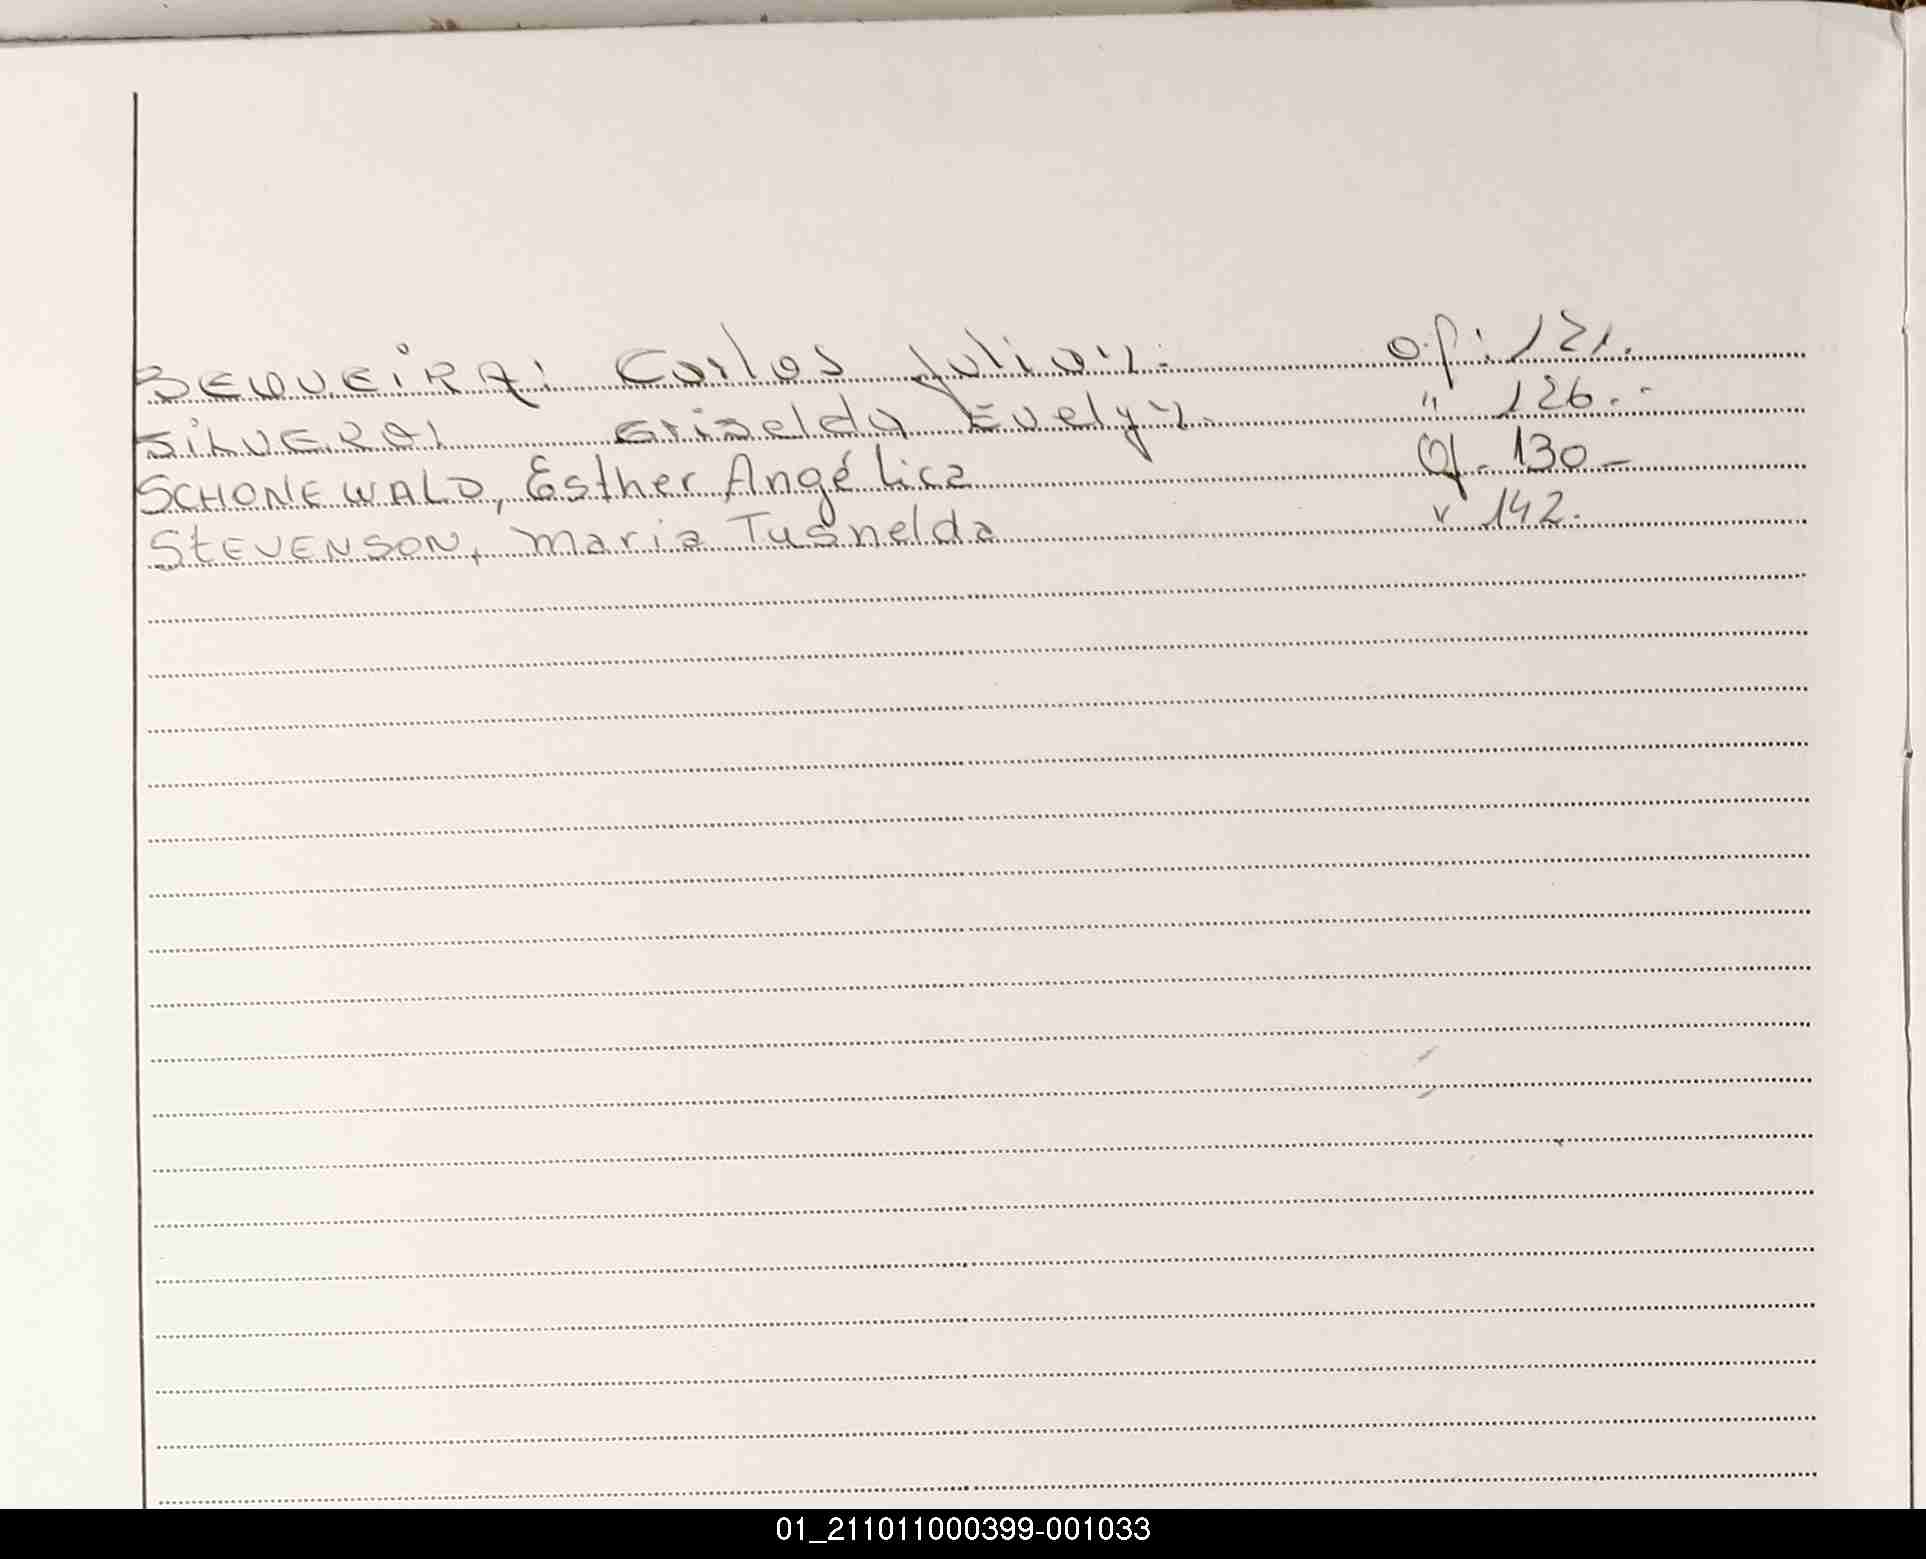 SEQUEIRA: Carlos Julian. of: 121.
SILVERA: Griselda Evelyn. " 126.-
SCHONEWALD, Esther Angélica Of. 130-
StEVENSON, maria Tusnelda " 142.
01_211011000399-001033